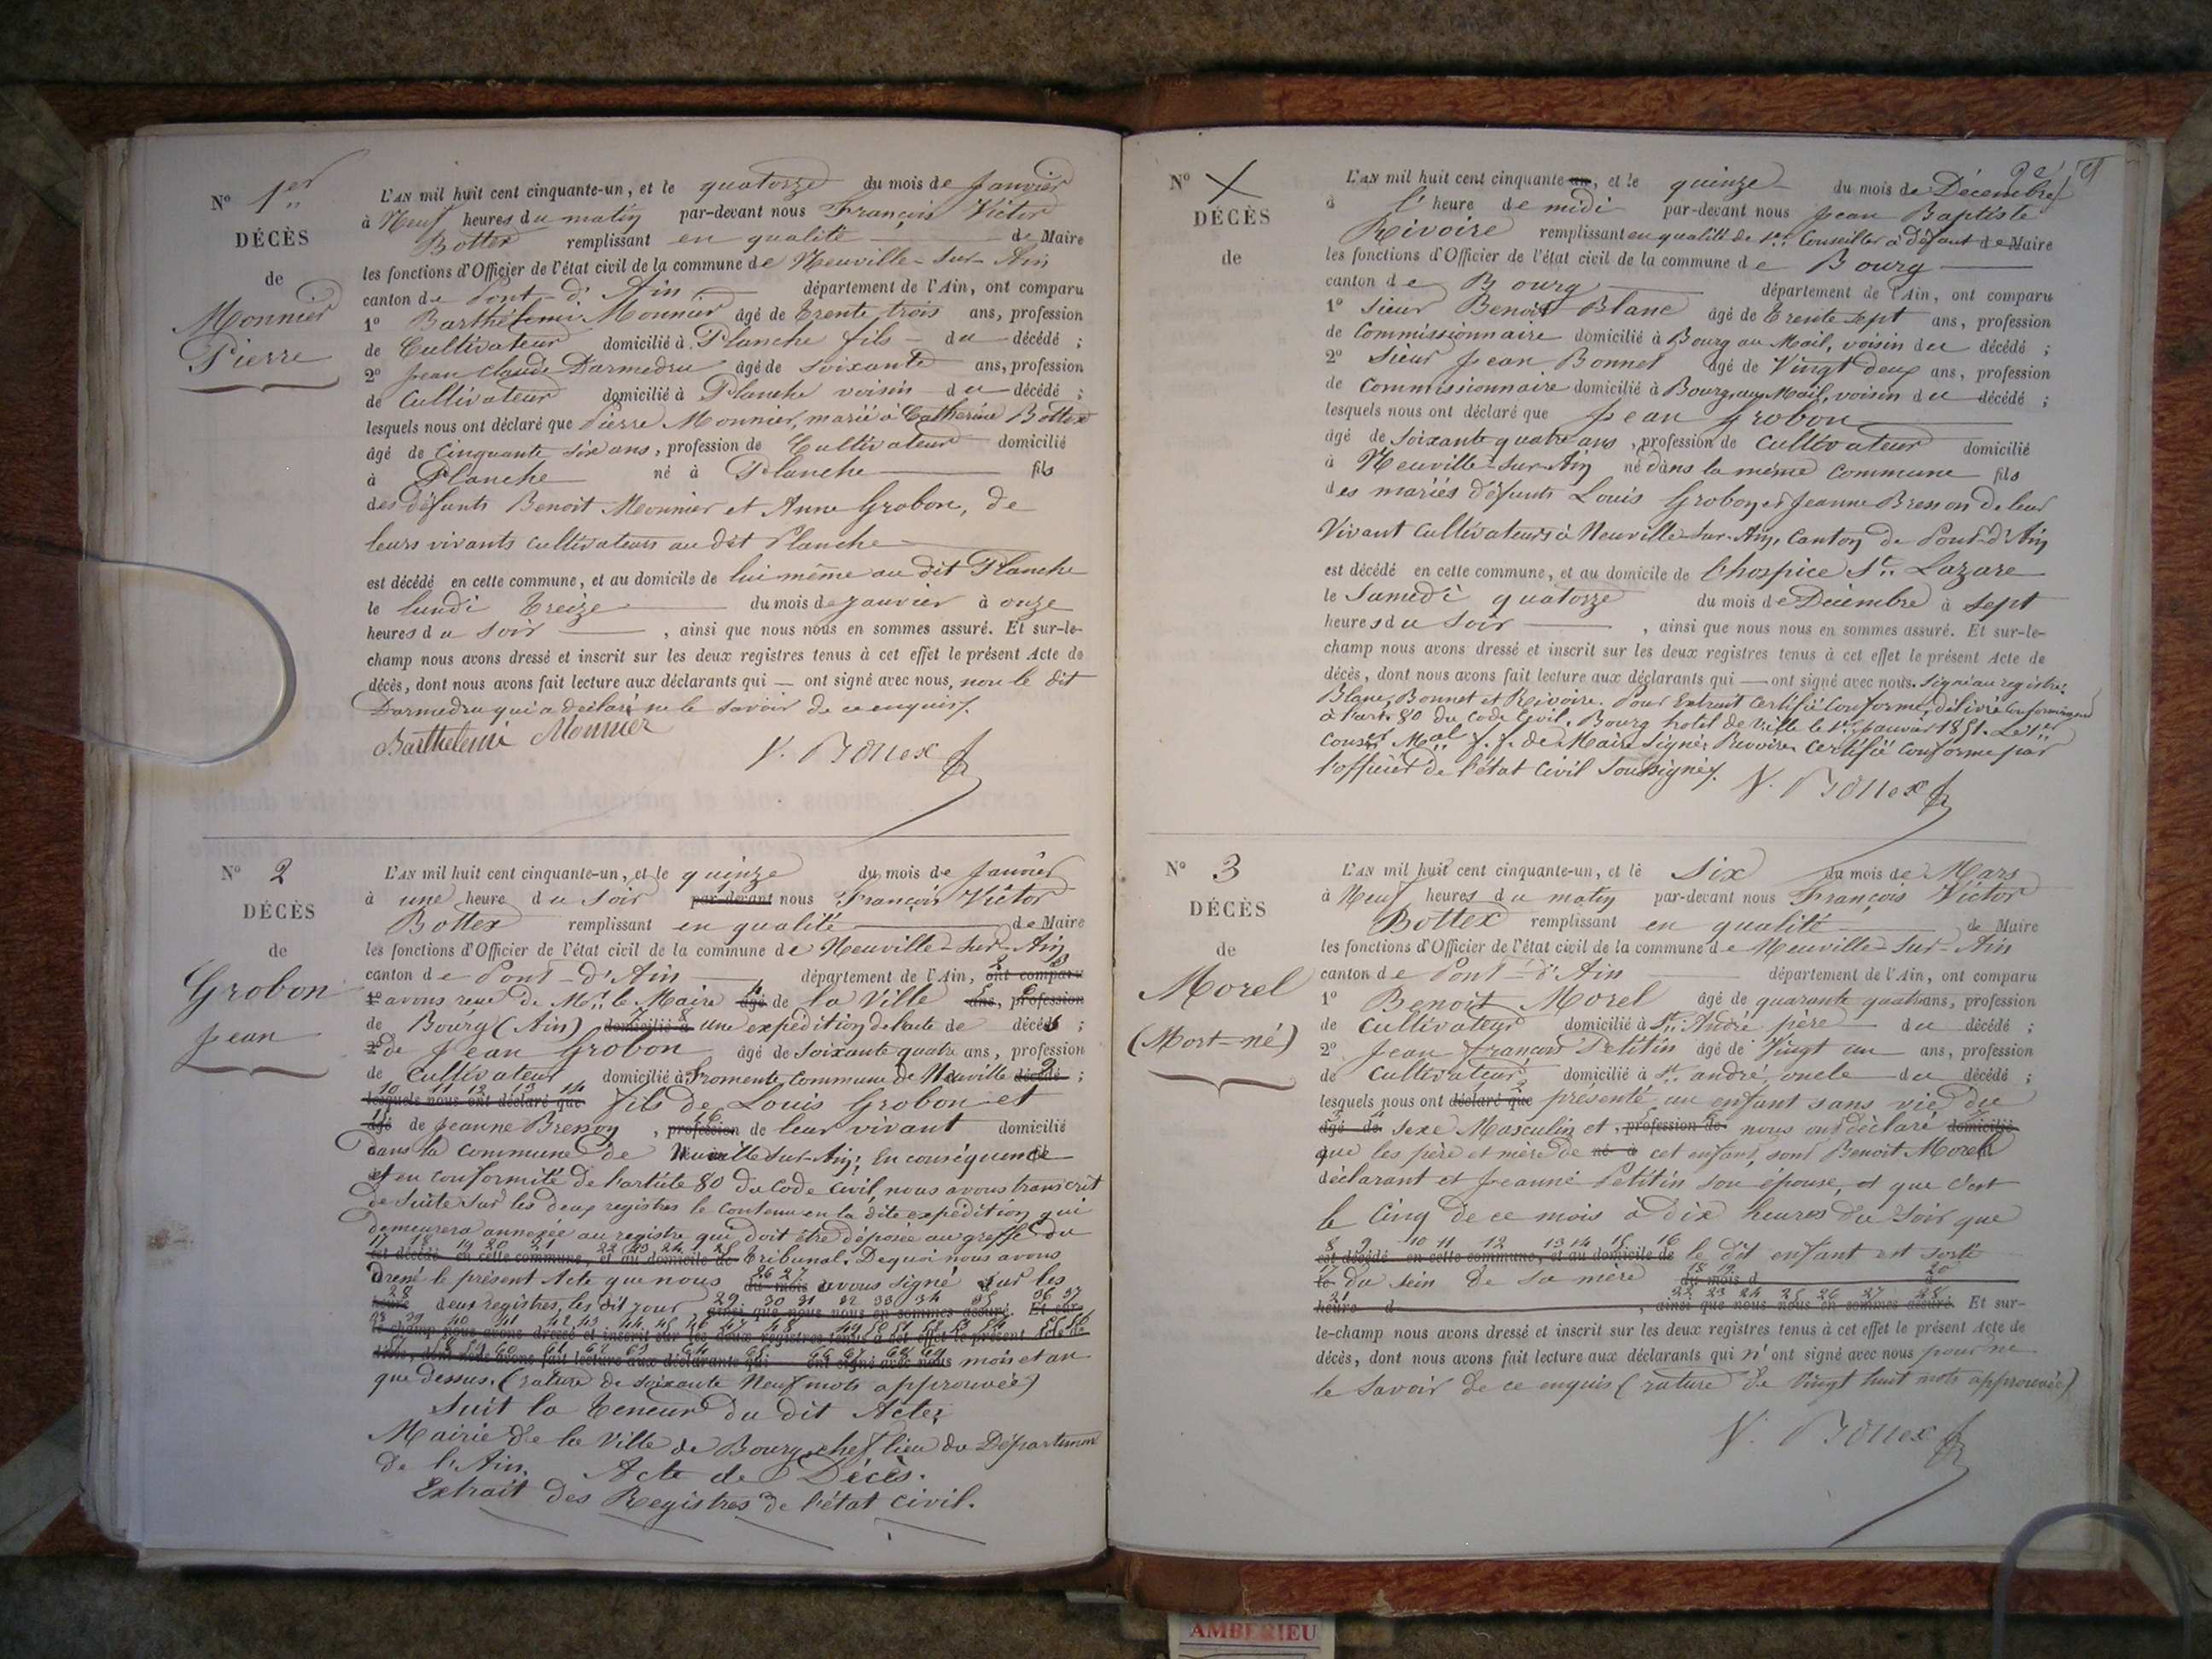 N° 1er
DÉCÈS
de
Monnier
Pierre
L'AN mil huit cent cinquante-un, et le quatorze du mois de Janvier
à Neuf heures du matin par-devant nous François Victor
Bottex remplissant en qualité de Maire
les fonctions d'Officier de l'état civil de la commune de Neuville-sur-Ain
canton de Pont-d'Ain département de l'Ain, ont comparu
1° Barthélemi Monnier âgé de trente trois ans, profession
de Cultivateur domicilié à Planche fils du décédé ;
2° Jean Claude Darmedru âgé de soixante ans, profession
de Cultivateur domicilié à Planche voisin du décédé ;
lesquels nous ont déclaré que Pierre Monnier, marié à Catherine Bottex
âgé de Cinquante six ans, profession de Cultivateur domicilié
à Planche né à Planche fils
des défunts Benoit Monnier et Anne Grobon, de
leurs vivants cultivateurs au dit Planche
est décédé en cette commune, et au domicile de lui même au dit Planche
le lundi treize du mois de janvier à onze
heures du soir, ainsi que nous nous en sommes assuré. Et sur-le-
champ nous avons dressé et inscrit sur les deux registres tenus à cet effet le présent Acte de
décès, dont nous avons fait lecture aux déclarants qui — ont signé avec nous, non le dit
Darmedru qui a déclaré ne le savoir de ce enquis.
Barthelemi Monnier
V. Bottex
N° 2
DÉCÈS
de
Grobon
Jean
L'AN mil huit cent cinquante-un, et le quinze du mois de Janvier
à une heure du soir par-devant nous François Victor
Bottex remplissant en qualité de Maire
les fonctions d'Officier de l'état civil de la commune de Neuville-sur-Ain
canton de Pont-d'Ain département de l'Ain, ont comparu
1° avons reçu de Mr. le Maire âgé de la Ville ans, profession
de Bourg (Ain) domicilié à une expédition de l'acte de décès ;
2° de Jean Grobon âgé de soixante quatre ans, profession
de Cultivateur domicilié à Fromente, Commune de Neuville décédé ;
lesquels nous ont déclaré que fils de Louis Grobon et
âgé de Jeanne Bresson, profession de leur vivant domicilié
dans la Commune de Neuville sur-Ain; En conséquence
et en conformité de l'article 80 du Code Civil, nous avons transcrit
de suite sur les deux registres le contenu en la dite expédition qui
demeurera annexée au registre qui doit être déposée au greffe du
est décédé en cette commune, et au domicile de tribunal. De quoi nous avons
dressé le présent Acte que nous du mois avons signé sur les
heure deux registres, les dit jour, ainsi que nous nous en sommes assuré. Et sur-
le-champ nous avons dressé et inscrit sur les deux registres tenus à cet effet le présent Acte de
décès, dont nous avons fait lecture aux déclarants qui ont signé avec nous mois et an
que dessus. (rature de soixante Neuf mots approuvée)
Suit la teneur du dit Acte;
Mairie de la Ville de Bourg, chef lieu du Département
de l'Ain. Acte de Décès.
Extrait des Registres de l'état civil.
N° X
DÉCÈS
de
L'AN mil huit cent cinquante un, et le quinze du mois de Décembre
à l'heure de midi par-devant nous Jean Baptiste
Rivoire remplissant en qualité de 1er. Conseiller à défaut de Maire
les fonctions d'Officier de l'état civil de la commune de Bourg
canton de Bourg département de l'Ain, ont comparu
1° Sieur Benoit Blanc âgé de trente sept ans, profession
de Commissionnaire domicilié à Bourg au Mail, voisin du décédé ;
2° Sieur Jean Bonnet âgé de Vingt deux ans, profession
de Commissionnaire domicilié à Bourg, au Mail, voisin du décédé ;
lesquels nous ont déclaré que Jean Grobon
âgé de Soixante quatre ans, profession de Cultivateur domicilié
à Neuville-sur-Ain né dans la même Commune fils
des mariés défunts Louis Grobon et Jeanne Bresson de leur
Vivant Cultivateurs à Neuville-sur-Ain, Canton de Pont-d'Ain
est décédé en cette commune, et au domicile de l'hospice St. Lazare
le Samedi quatorze du mois de Décembre à sept
heures du Soir, ainsi que nous nous en sommes assuré. Et sur-le-
champ nous avons dressé et inscrit sur les deux registres tenus à cet effet le présent Acte de
décès, dont nous avons fait lecture aux déclarants qui — ont signé avec nous. Signé au registre:
Blanc, Bonnet et Rivoire. Pour Extrait Certifié Conforme, délivré conformément
à l'art. 80 du Code Civil. Bourg hotel de Ville le 1er. Janvier 1851. Le 1er
Conser Mal f. f. de Maire Signé: Rivoire. Certifié conforme par
l'officier de l'état civil soussigné.
V. Bottex
N° 3
DÉCÈS
de
Morel
(Mort-né)
L'AN mil huit cent cinquante-un, et le Six du mois de Mars
à Neuf heures du matin par-devant nous François Victor
Bottex remplissant en qualité de Maire
les fonctions d'Officier de l'état civil de la commune de Neuville-sur-Ain
canton de Pont-d'Ain département de l'Ain, ont comparu
1° Benoit Morel âgé de quarante quatre ans, profession
de Cultivateur domicilié à St. André père du décédé ;
2° Jean François Petitin âgé de Vingt un ans, profession
de Cultivateur domicilié à St. andré, oncle du décédé ;
lesquels nous ont déclaré que présenté un enfant sans vie du
âgé de sexe Masculin et, profession de nous ont déclaré domicilié
que les père et mère de né à cet enfant, sont Benoit Morel
déclarant et Jeanne Petitin son épouse, et que c'est
le Cinq de ce mois à dix heures du Soir que
est décédé en cette commune, et au domicile de le dit enfant est sorti
le du sein de sa mère du mois d à
heure d, ainsi que nous nous en sommes assuré. Et sur-
le-champ nous avons dressé et inscrit sur les deux registres tenus à cet effet le présent Acte de
décès, dont nous avons fait lecture aux déclarants qui n'ont signé avec nous pour ne
le Savoir de ce enquis (rature de Vingt huit mots approuvée)
V. Bottex
AMBERIEU